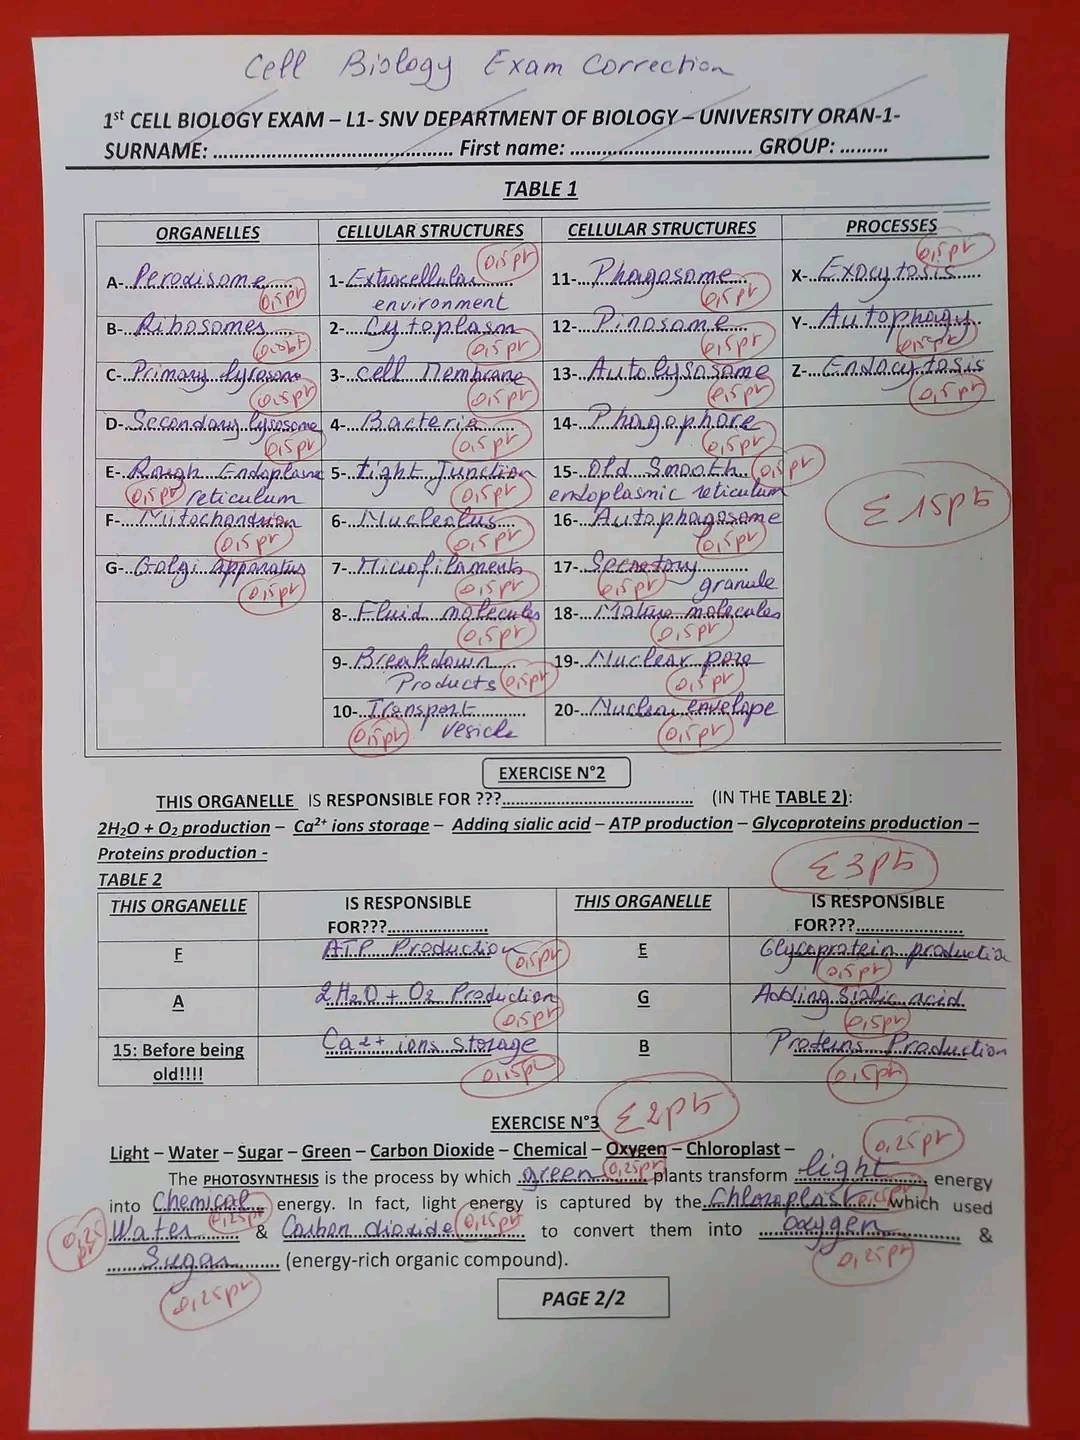 Cell Biology Exam Correction
1st CELL BIOLOGY EXAM – L1- SNV DEPARTMENT OF BIOLOGY – UNIVERSITY ORAN-1-
SURNAME: ............ First name: ............ GROUP: .........
TABLE 1
ORGANELLES CELLULAR STRUCTURES CELLULAR STRUCTURES PROCESSES
A- Peroxisome 0,5pt 1- Extracellular environment 0,5pt 11- Phagosome 0,5pt X- Exocytosis 0,5pt
B- Ribosomes 2- Cytoplasm 0,5pt 12- Pinosome 0,5pt Y- Autophagy 0,5pt
C- Primary lysosome 0,5pt 3- Cell Membrane 0,5pt 13- Autolysosome 0,5pt Z- Endocytosis 0,5pt
D- Secondary lysosome 0,5pt 4- Bacteria 0,5pt 14- Phagophore 0,5pt
E- Rough Endoplasmic reticulum 0,5pt 5- tight Junction 0,5pt 15- Old Smooth endoplasmic reticulum 0,5pt
Σ 15pts
F- Mitochondrion 0,5pt 6- Nucleolus 0,5pt 16- Autophagosome 0,5pt
G- Golgi apparatus 0,5pt 7- Microfilaments 0,5pt 17- Secretory granule 0,5pt
8- Fluid molecules 0,5pt 18- Mature molecules 0,5pt
9- Breakdown Products 0,5pt 19- Nuclear pore 0,5pt
10- Transport vesicle 0,5pt 20- Nuclear envelope 0,5pt
EXERCISE N°2
THIS ORGANELLE IS RESPONSIBLE FOR ???............ (IN THE TABLE 2):
2H₂O + O₂ production – Ca²⁺ ions storage – Adding sialic acid – ATP production – Glycoproteins production –
Proteins production -
Σ 3pts
TABLE 2
THIS ORGANELLE IS RESPONSIBLE FOR???............ THIS ORGANELLE IS RESPONSIBLE FOR???............
F ATP Production 0,5pt E Glycoprotein production 0,5pt
A 2H₂O + O₂ Production 0,5pt G Adding sialic acid 0,5pt
15: Before being old!!!! Ca²⁺ ions storage 0,5pt B Proteins Production 0,5pt
EXERCISE N°3 Σ 2pts
Light – Water – Sugar – Green – Carbon Dioxide – Chemical – Oxygen – Chloroplast –
The PHOTOSYNTHESIS is the process by which green 0,25pt plants transform light 0,25pt energy
into Chemical 0,25pt energy. In fact, light energy is captured by the Chloroplast 0,25pt which used
0,25pt Water & Carbon dioxide 0,25pt to convert them into oxygen 0,25pt &
Sugar 0,25pt (energy-rich organic compound).
PAGE 2/2